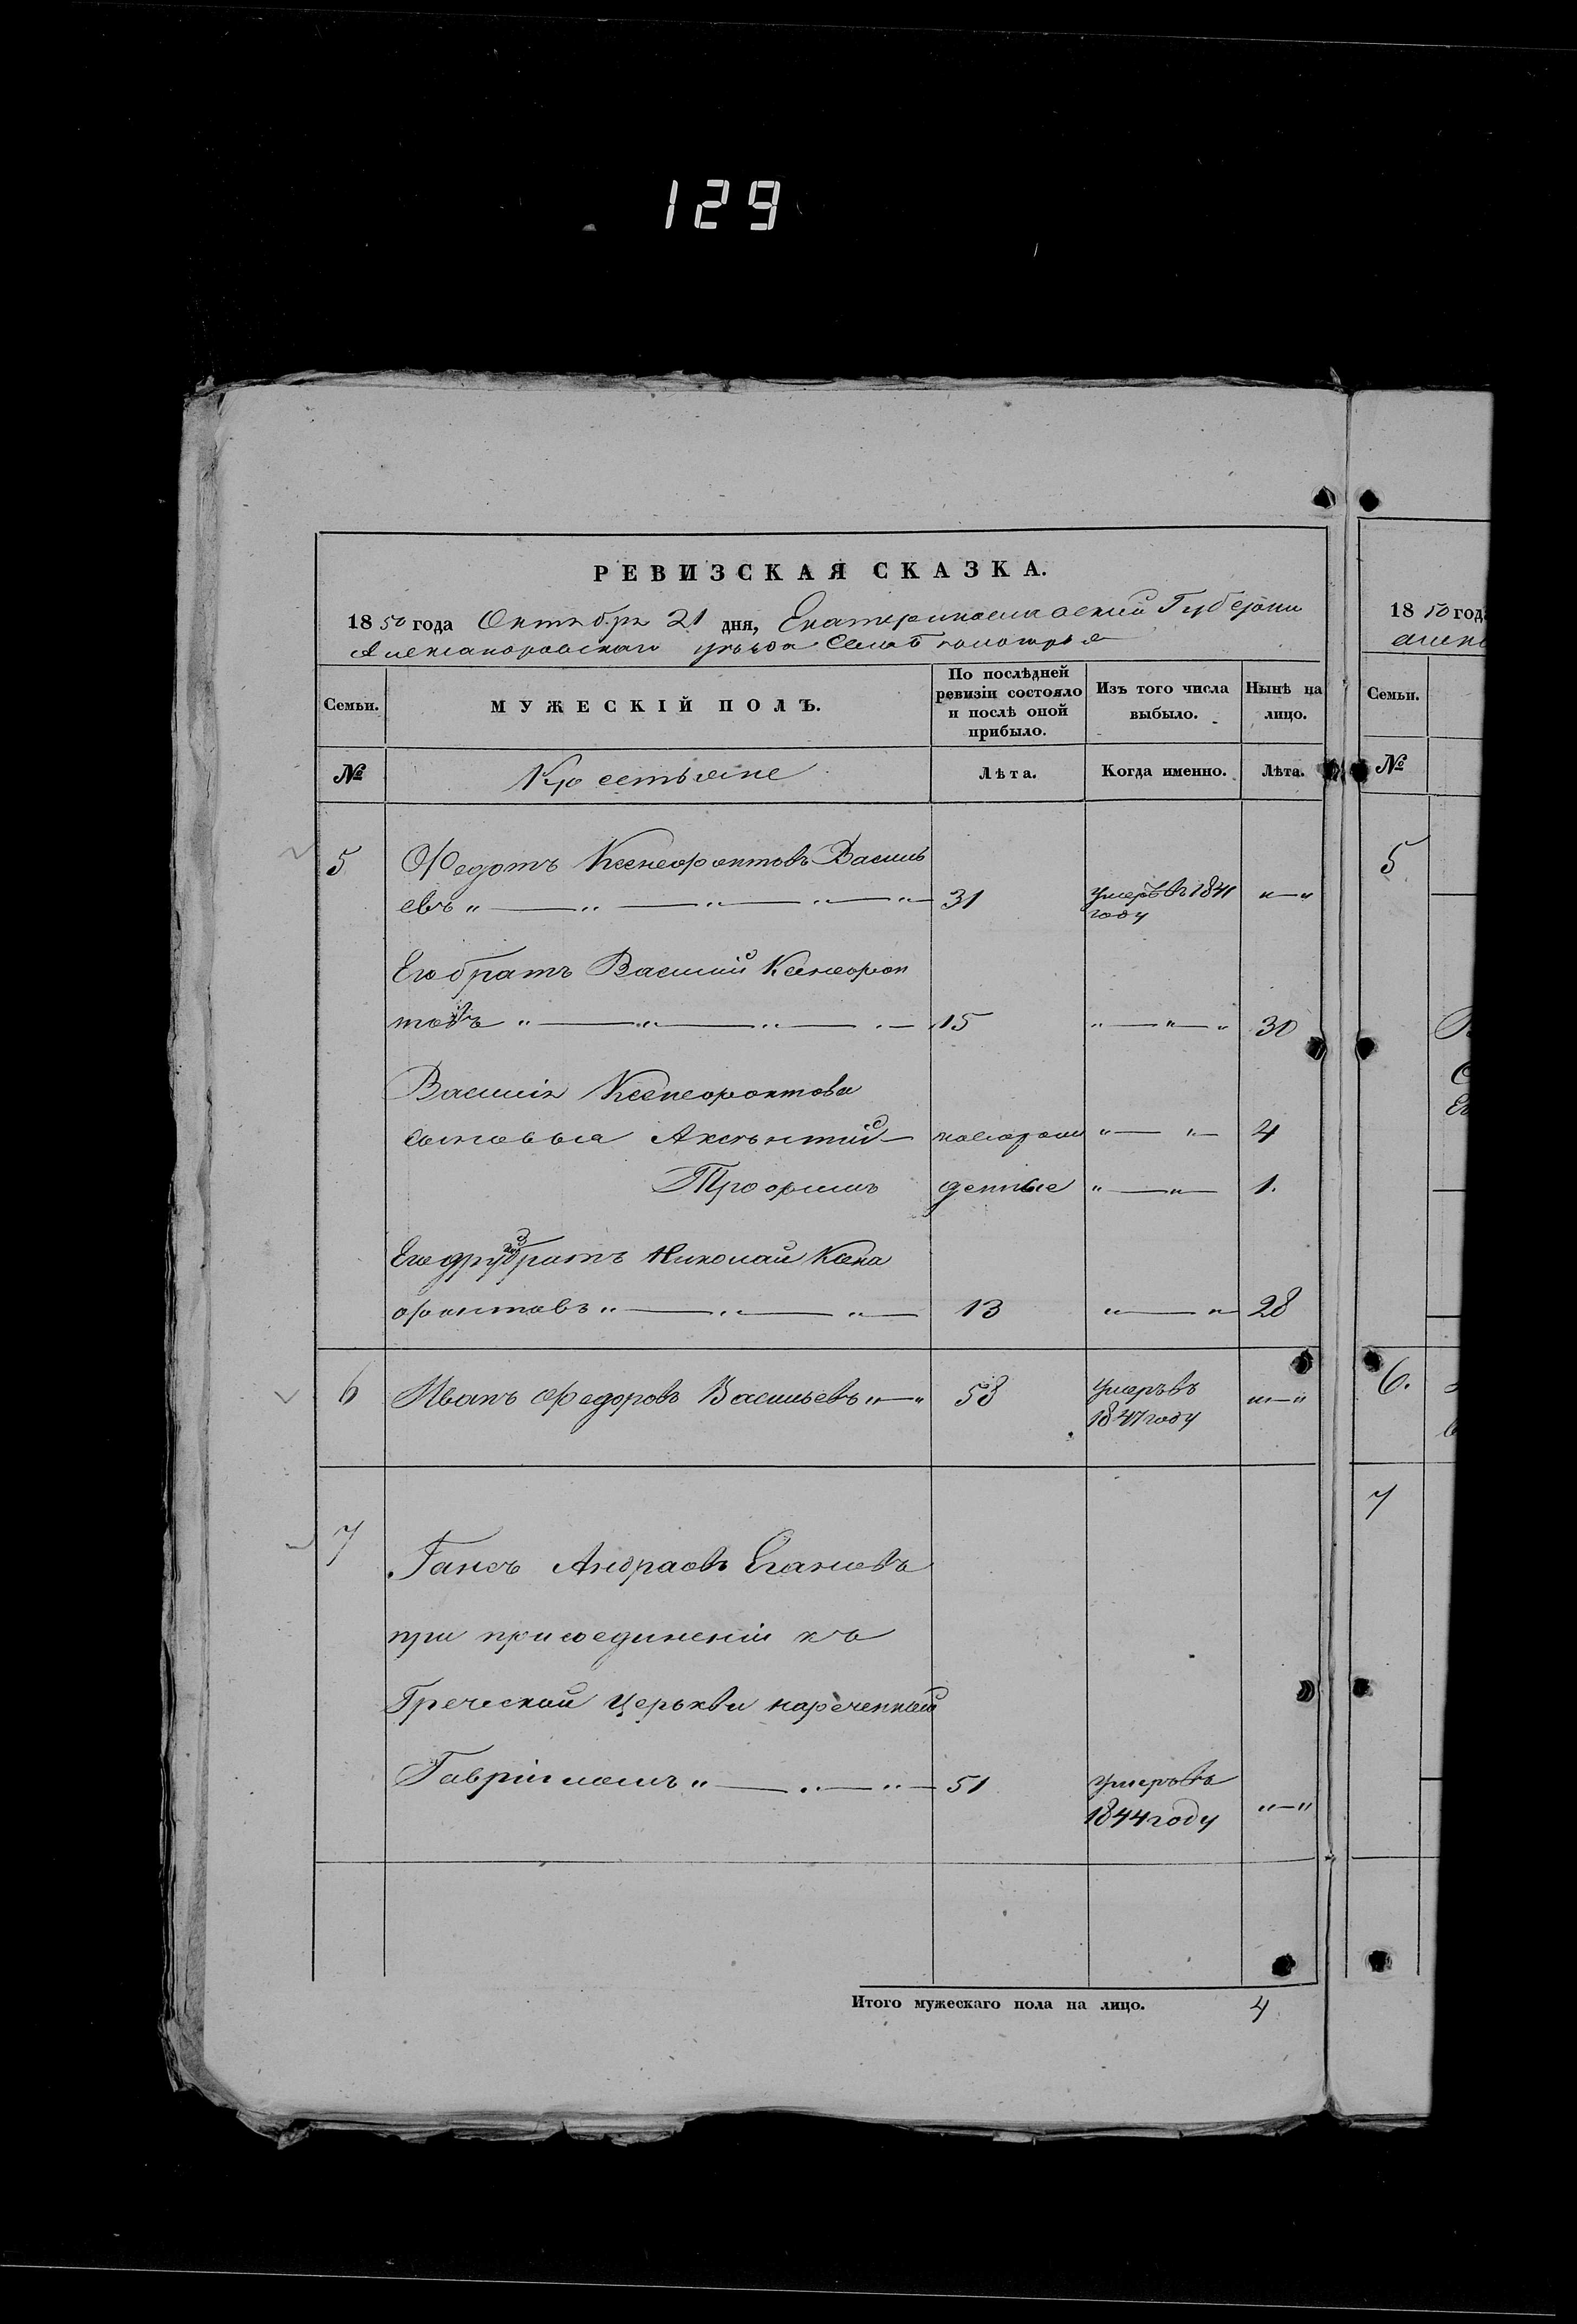 129
РЕВИЗСКАЯ СКАЗКА.
1850 года Октября 21 дня, Екатеринославской Губерніи
Александровскаго уѣзда
Семьи.
МУЖЕСКІЙ ПОЛЪ.
По послѣдней ревизіи состояло и послѣ оной прибыло.
Изъ того числа выбыло.
Нынѣ на лицо.
№
Крестьяне
Лѣта.
Когда именно.
Лѣта.
5 Федотъ Ксенофонтовъ Василь
евъ „ — „ — „ — „ — „ — 31 умеръ въ 1841 году „—„
Его братъ Василий Ксенофон
товъ „ — „ — „ — „ — 15 „ — „ — „ 30
Василія Ксенофонтова
сыновья Аксентий — новорож „ — „ — 4
Трофимъ денные „ — „ — 1.
Его другой братъ Николай Ксено
фонтовъ „ — „ — „ — 13 „ — „ — 28
6 Иванъ Федоровъ Васильевъ „—„ 53 умеръ въ 1847 году „—„
7
Гансъ Андраовъ Егановъ
при присоединеніи къ
Греческой Церькви нареченный
Гавріиломъ „ — „ — „ — 51 умеръ въ
1844 году „—„
Итого мужескаго пола на лицо. 4
1850 год
Семьи.
№
5
6.
7